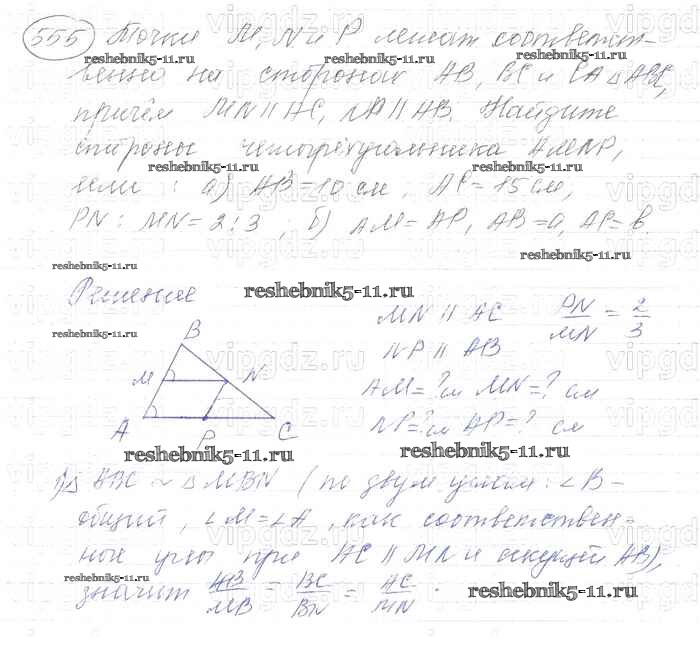 555 Точки M, N и P лежат соответст-
венно на сторонах AB, BC и CA △ ABC,
причём MN || AC, NP || AB. Найдите
стороны четырёхугольника AMNP,
если : а) AB = 10 см, AC = 15 см,
PN : MN = 2 : 3, б) AM = AP, AB = a, AC = b.
Решение
MN || AC PN/MN = 2/3
NP || AB
AM = ? см MN = ? см
NP = ? см AP = ? см
B
M N
A P C
1) △ ABC ~ △ MBN (по двум углам: ∠B -
общий, ∠M = ∠A, как соответствен-
ные углы при AC || MN и секущей AB),
значит AB/MB = BC/BN = AC/MN.
reshebnik5-11.ru
vipgdz.ru